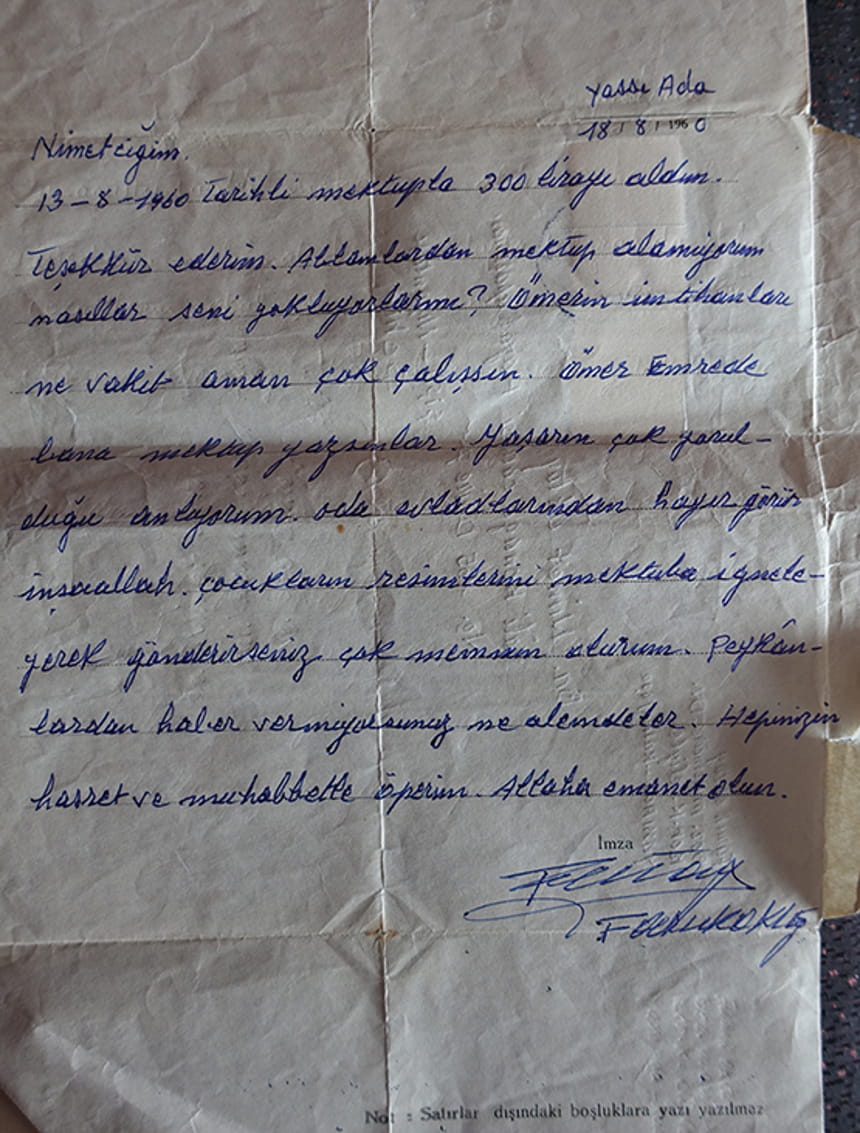 Yassı Ada
18 / 8 / 1960
Nimetciğim.
13-8-1960 Tarihli mektupla 300 lirayı aldım.
Teşekkür ederim. Ablamlardan mektup alamıyorum
nasıllar seni yokluyorlarmı? Ömerin imtihanları
ne vakit aman çok çalışsın. Ömer Emrede
bana mektup yazsınlar. Yaşarın çok yorul-
duğu anlıyorum. oda evladlarından hayır görür
inşaallah. çocukların resimlerini mektuba iğnele-
yerek gönderirseniz çok memnun olurum. Peykân-
lardan haber vermiyorsunuz ne alemdeler. Hepinizin
hasret ve muhabbetle öperim. Allaha emanet olun.
İmza
Faruk Oktay
Not : Satırlar dışındaki boşluklara yazı yazılmaz